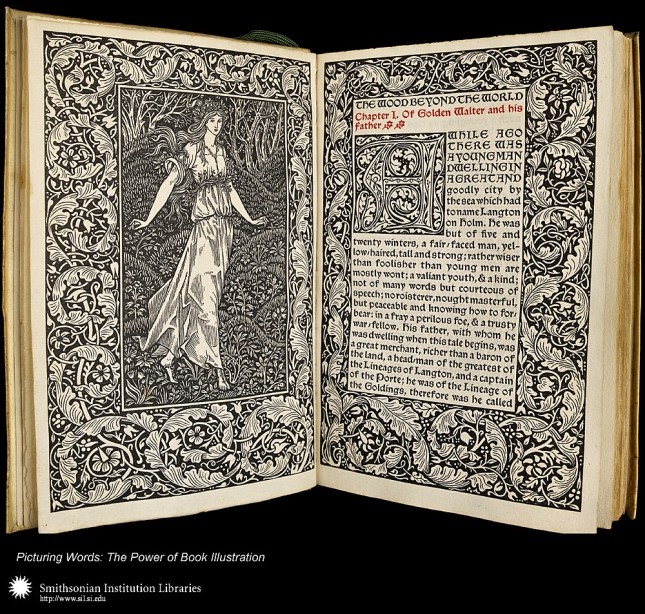 THE WOOD BEYOND THE WORLD
Chapter I. Of Golden Walter and his
father
A WHILE AGO
THERE WAS
A YOUNG MAN
DWELLING IN
A GREAT AND
goodly city by
the sea which had
to name Langton
on Holm. He was
but of five and
twenty winters, a fair-faced man, yel-
low-haired, tall and strong; rather wiser
than foolisher than young men are
mostly wont; a valiant youth, & a kind;
not of many words but courteous of
speech; no roisterer, nought masterful,
but peaceable and knowing how to for-
bear: in a fray a perilous foe, & a trusty
war-fellow. His father, with whom he
was dwelling when this tale begins, was
a great merchant, richer than a baron of
the land, a head-man of the greatest of
the Lineages of Langton, and a captain
of the Porte; he was of the Lineage of
the Goldings, therefore was he called
Picturing Words: The Power of Book Illustration
Smithsonian Institution Libraries
http://www.sil.si.edu